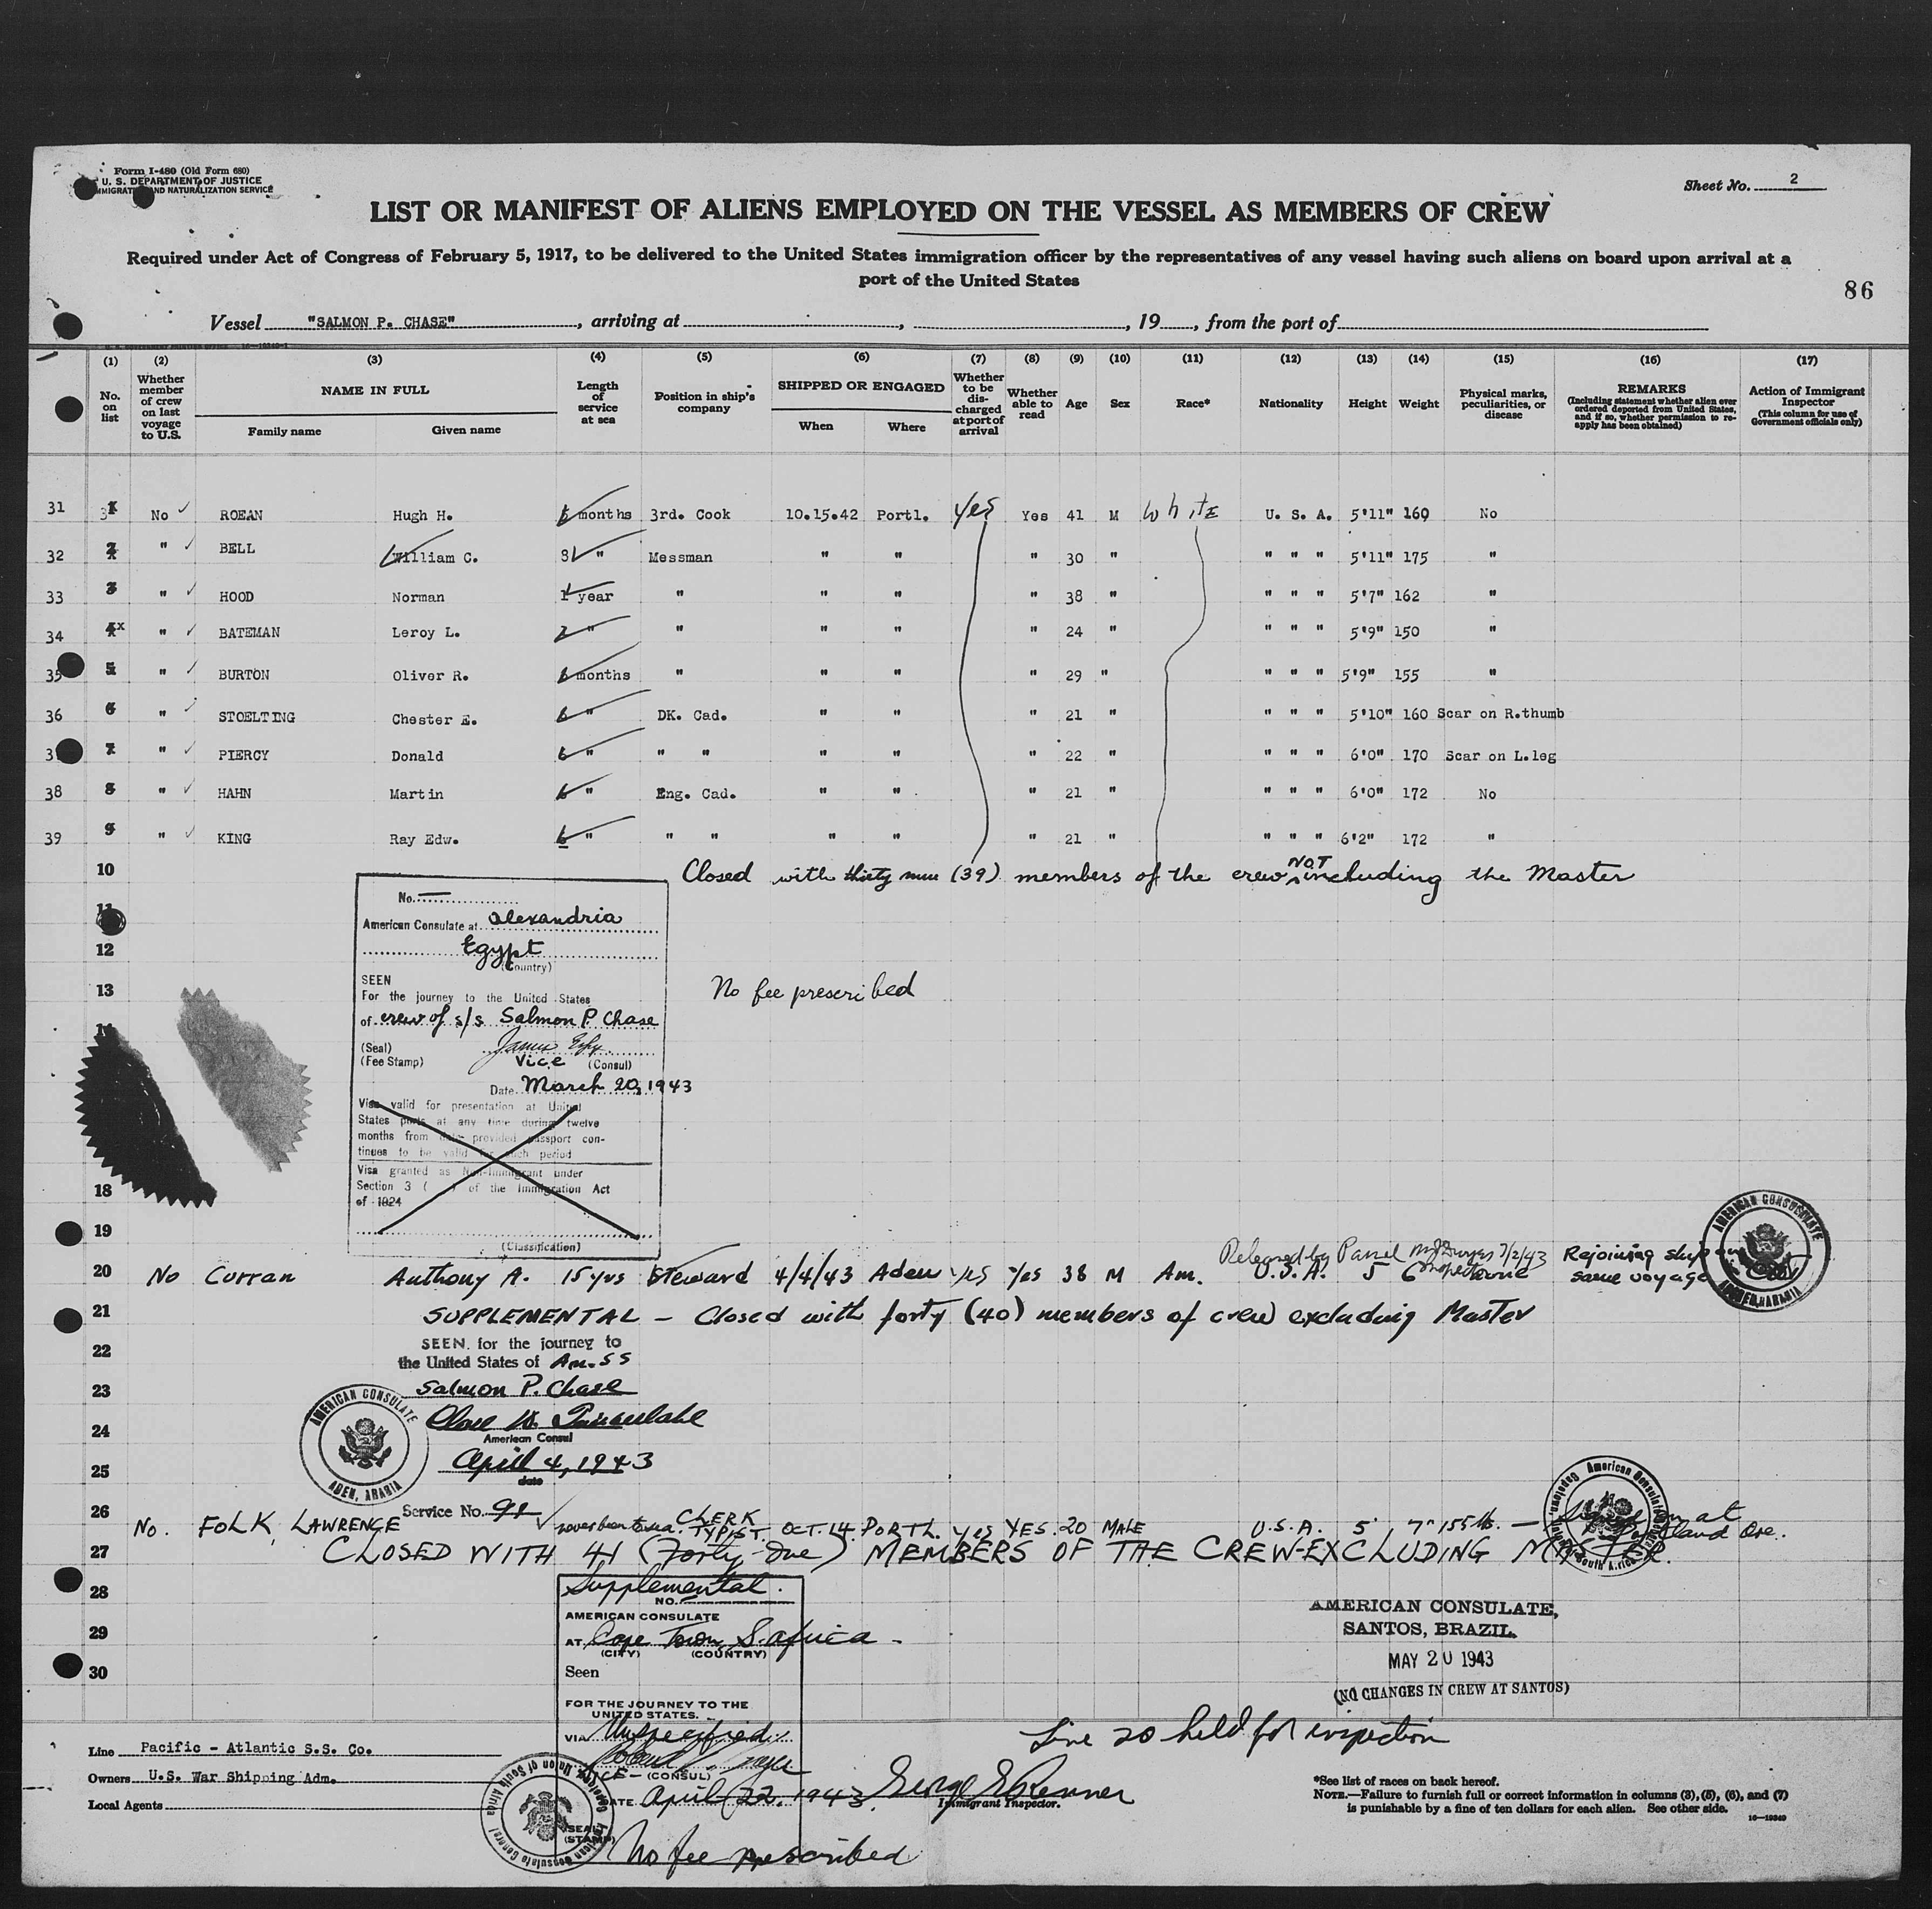 Form I-480 (Old Form 680)
U. S. DEPARTMENT OF JUSTICE
IMMIGRATION AND NATURALIZATION SERVICE
Sheet No. 2
LIST OR MANIFEST OF ALIENS EMPLOYED ON THE VESSEL AS MEMBERS OF CREW
Required under Act of Congress of February 5, 1917, to be delivered to the United States immigration officer by the representatives of any vessel having such aliens on board upon arrival at a
port of the United States
86
Vessel "SALMON P. CHASE", arriving at , , 19 , from the port of
(1) (2) (3) (4) (5) (6) (7) (8) (9) (10) (11) (12) (13) (14) (15) (16) (17)
No. on list
Whether member of crew on last voyage to U.S.
NAME IN FULL
Family name Given name
Length of service at sea
Position in ship's company
SHIPPED OR ENGAGED
When Where
Whether to be discharged at port of arrival
Whether able to read
Age
Sex
Race*
Nationality
Height
Weight
Physical marks, peculiarities, or disease
REMARKS
(Including statement whether alien ever ordered deported from United States, and if so, whether permission to reapply has been obtained)
Action of Immigrant Inspector
(This column for use of Government officials only)
31 No ROEAN Hugh H. 6 months 3rd. Cook 10.15.42 Portl. Yes Yes 41 M White U. S. A. 5'11" 169 No
32 " BELL William C. 8 " Messman " " " 30 " " " " 5'11" 175 "
33 " HOOD Norman 1 year " " " " 38 " " " " 5'7" 162 "
34 " BATEMAN Leroy L. 2 " " " " " 24 " " " " 5'9" 150 "
35 " BURTON Oliver R. 6 months " " " " 29 " " " " 5'9" 155 "
36 " STOELTING Chester E. 6 " DK. Cad. " " " 21 " " " " 5'10" 160 Scar on R.thumb
37 " PIERCY Donald 6 " " " " " " 22 " " " " 6'0" 170 Scar on L.leg
38 " HAHN Martin 6 " Eng. Cad. " " " 21 " " " " 6'0" 172 No
39 " KING Ray Edw. 6 " " " " " " 21 " " " " 6'2" 172 "
10 Closed with thirty nine (39) members of the crew NOT including the Master
11
No.
American Consulate at Alexandria
12
Egypt
(Country)
SEEN
13 For the journey to the United States
No fee prescribed
of crew of s/s Salmon P. Chase
14
(Seal)
(Fee Stamp) Vice (Consul)
Date March 20, 1943
Visa valid for presentation at United
States ports at any time during twelve
months from date provided passport con-
tinues to be valid for such period
Visa granted as Non-Immigrant under
18 Section 3 ( ) of the Immigration Act
of 1924
19
(Classification)
AMERICAN CONSULATE
ADEN, ARABIA
Released by Panel 7/2/43
Rejoining ship on
20 No Curran Anthony A. 15 yrs Steward 4/4/43 Aden yes Yes 38 M Am. U.S.A. 5 6 same voyage
21 SUPPLEMENTAL – Closed with forty (40) members of crew excluding Master
22 SEEN for the journey to
the United States of Am. SS
23 Salmon P. Chase
AMERICAN CONSULATE
ADEN, ARABIA
24
American Consul
25 April 4, 1943
date
26 Service No. 91
No. FOLK LAWRENCE never been to sea CLERK TYPIST. OCT. 14 PORTL. yes YES 20 MALE U.S.A. 5' 7" 155 lb. — at Portland Ore.
27 CLOSED WITH 41 (Forty-one) MEMBERS OF THE CREW-EXCLUDING MASTER.
28 Supplemental.
NO.
AMERICAN CONSULATE
29 AT Cape Town, S. Africa
(CITY) (COUNTRY)
30 Seen
FOR THE JOURNEY TO THE
UNITED STATES.
VIA Unspecified
VICE- (CONSUL)
DATE April 22, 1943
(SEAL)
(STAMP)
No fee prescribed
AMERICAN CONSULATE,
SANTOS, BRAZIL.
MAY 20 1943
(NO CHANGES IN CREW AT SANTOS)
Line 20 held for inspection
Line Pacific - Atlantic S.S. Co.
Owners U.S. War Shipping Adm.
Local Agents
George S Renner
Immigrant Inspector.
*See list of races on back hereof.
NOTE.—Failure to furnish full or correct information in columns (3), (5), (6), and (7)
is punishable by a fine of ten dollars for each alien. See other side.
16—19340